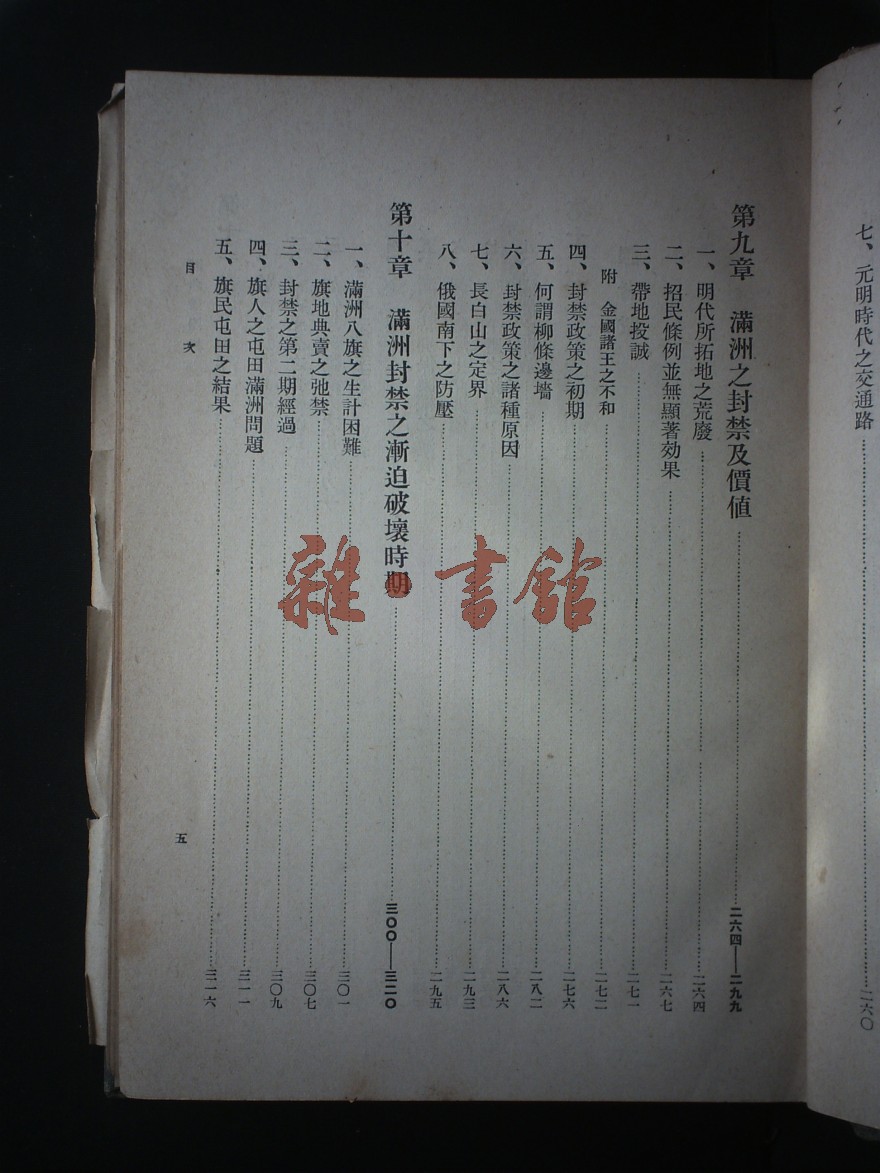 七、元明時代之交通路……二六〇
第九章　滿洲之封禁及價值……二六四——二九九
一、明代所拓地之荒廢……二六四
二、招民條例並無顯著効果……二六七
三、帶地投誠……二七一
附　金國諸王之不和……二七二
四、封禁政策之初期……二七六
五、何謂柳條邊墻……二八二
六、封禁政策之諸種原因……二八六
七、長白山之定界……二九三
八、俄國南下之防壓……二九五
第十章　滿洲封禁之漸迫破壞時期……三〇〇——三二〇
一、滿洲八旗之生計困難……三〇一
二、旗地典賣之弛禁……三〇七
三、封禁之第二期經過……三〇九
四、旗人之屯田滿洲問題……三一一
五、旗民屯田之結果……三一六
目次
五
雜書館